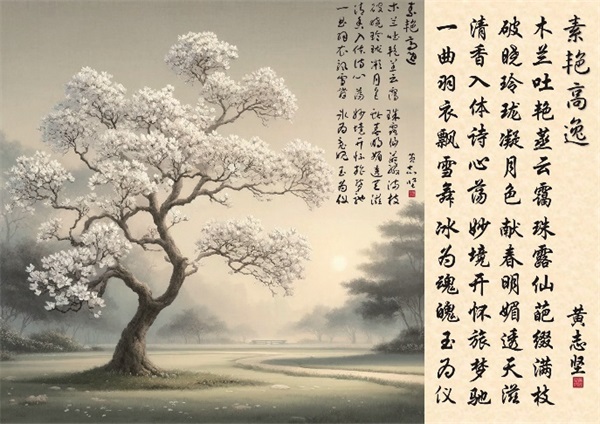 素艳高逸
木兰吐艳蒸云霭 珠露仙葩缀满枝
破晓玲珑凝月色 献春明媚透天滋
清香入体诗心荡 妙境开怀旅梦驰
一曲羽衣飘雪舞 冰为魂魄玉为仪
黄志坚
素艳高逸
木兰吐艳蒸云霭 珠露仙葩缀满枝
破晓玲珑凝月色 献春明媚透天滋
清香入体诗心荡 妙境开怀旅梦驰
一曲羽衣飘雪舞 冰为魂魄玉为仪
黄志坚